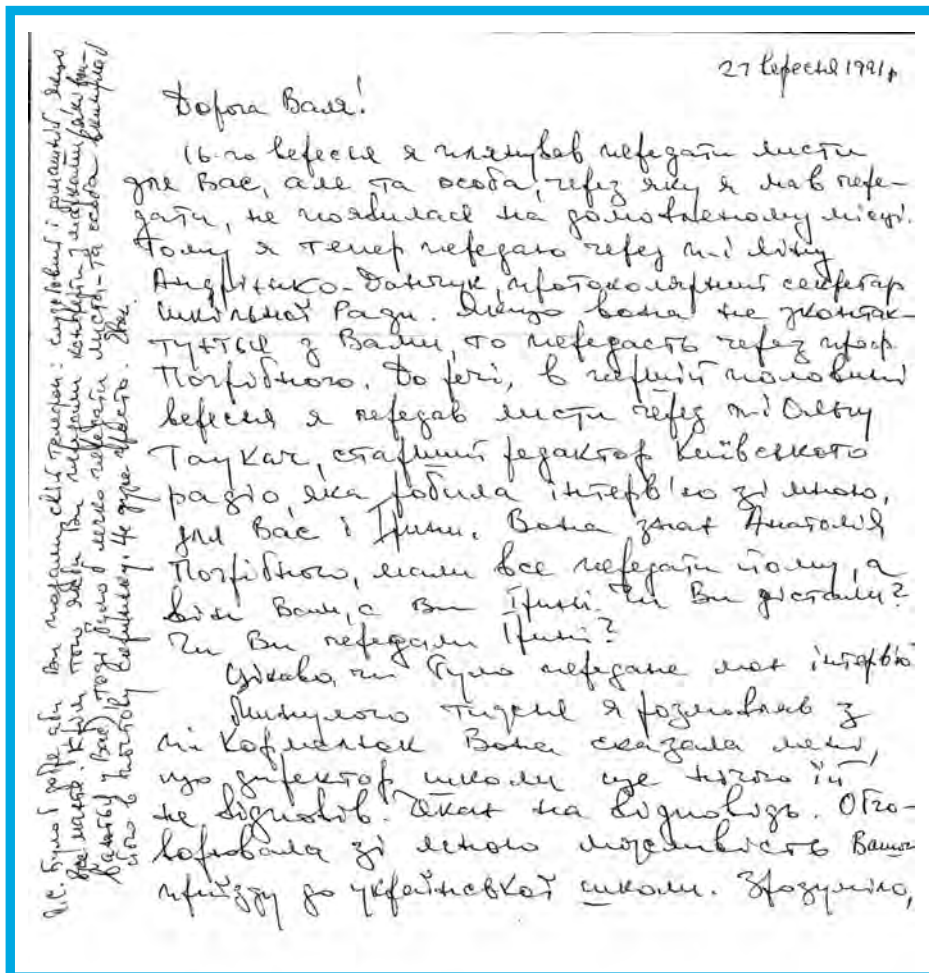 27 вересня 1991 р
Дорога Валя!
16-го вересня я плянував передати листи
для Вас, але та особа, через яку я мав пере-
дати, не появилася на домовленому місці.
Тому я тепер передаю через п-і Ліну
Андрієнко-Данчук, протоколярний секретар
Шкільної Ради. Якщо вона не зконтак-
тується з Вами, то передасть через проф
Погрібного. До речі, в першій половині
вересня я передав листи через п-і Ольгу
Таукач, старший редактор Київського
радіо, яка робила інтерв'ю зі мною,
для Вас і Ірини. Вона знає Анатолія
Погрібного, мали все передати йому, а
він Вам, а Ви Ірині. Чи Ви дістали?
Чи Ви передали Ірині?
Цікаво, чи було передане моє інтервю
Минулого тижня я розмовляв з
п-і Кормелюк Вона сказала мені,
що директор школи ще нічого їй
не відповів. Чекає на відповідь. Обго-
ворювала зі мною можливість Вашого
приїзду до української школи. Зрозуміло,
P.С. Було б добре аби Ви подали свій телефон: службовий і домашній якщо
Ви маєте. Крім того якби Ви
у Вас) тоді було б легко передати листа - та особа
його в поштову скриньку. Це дуже просто.